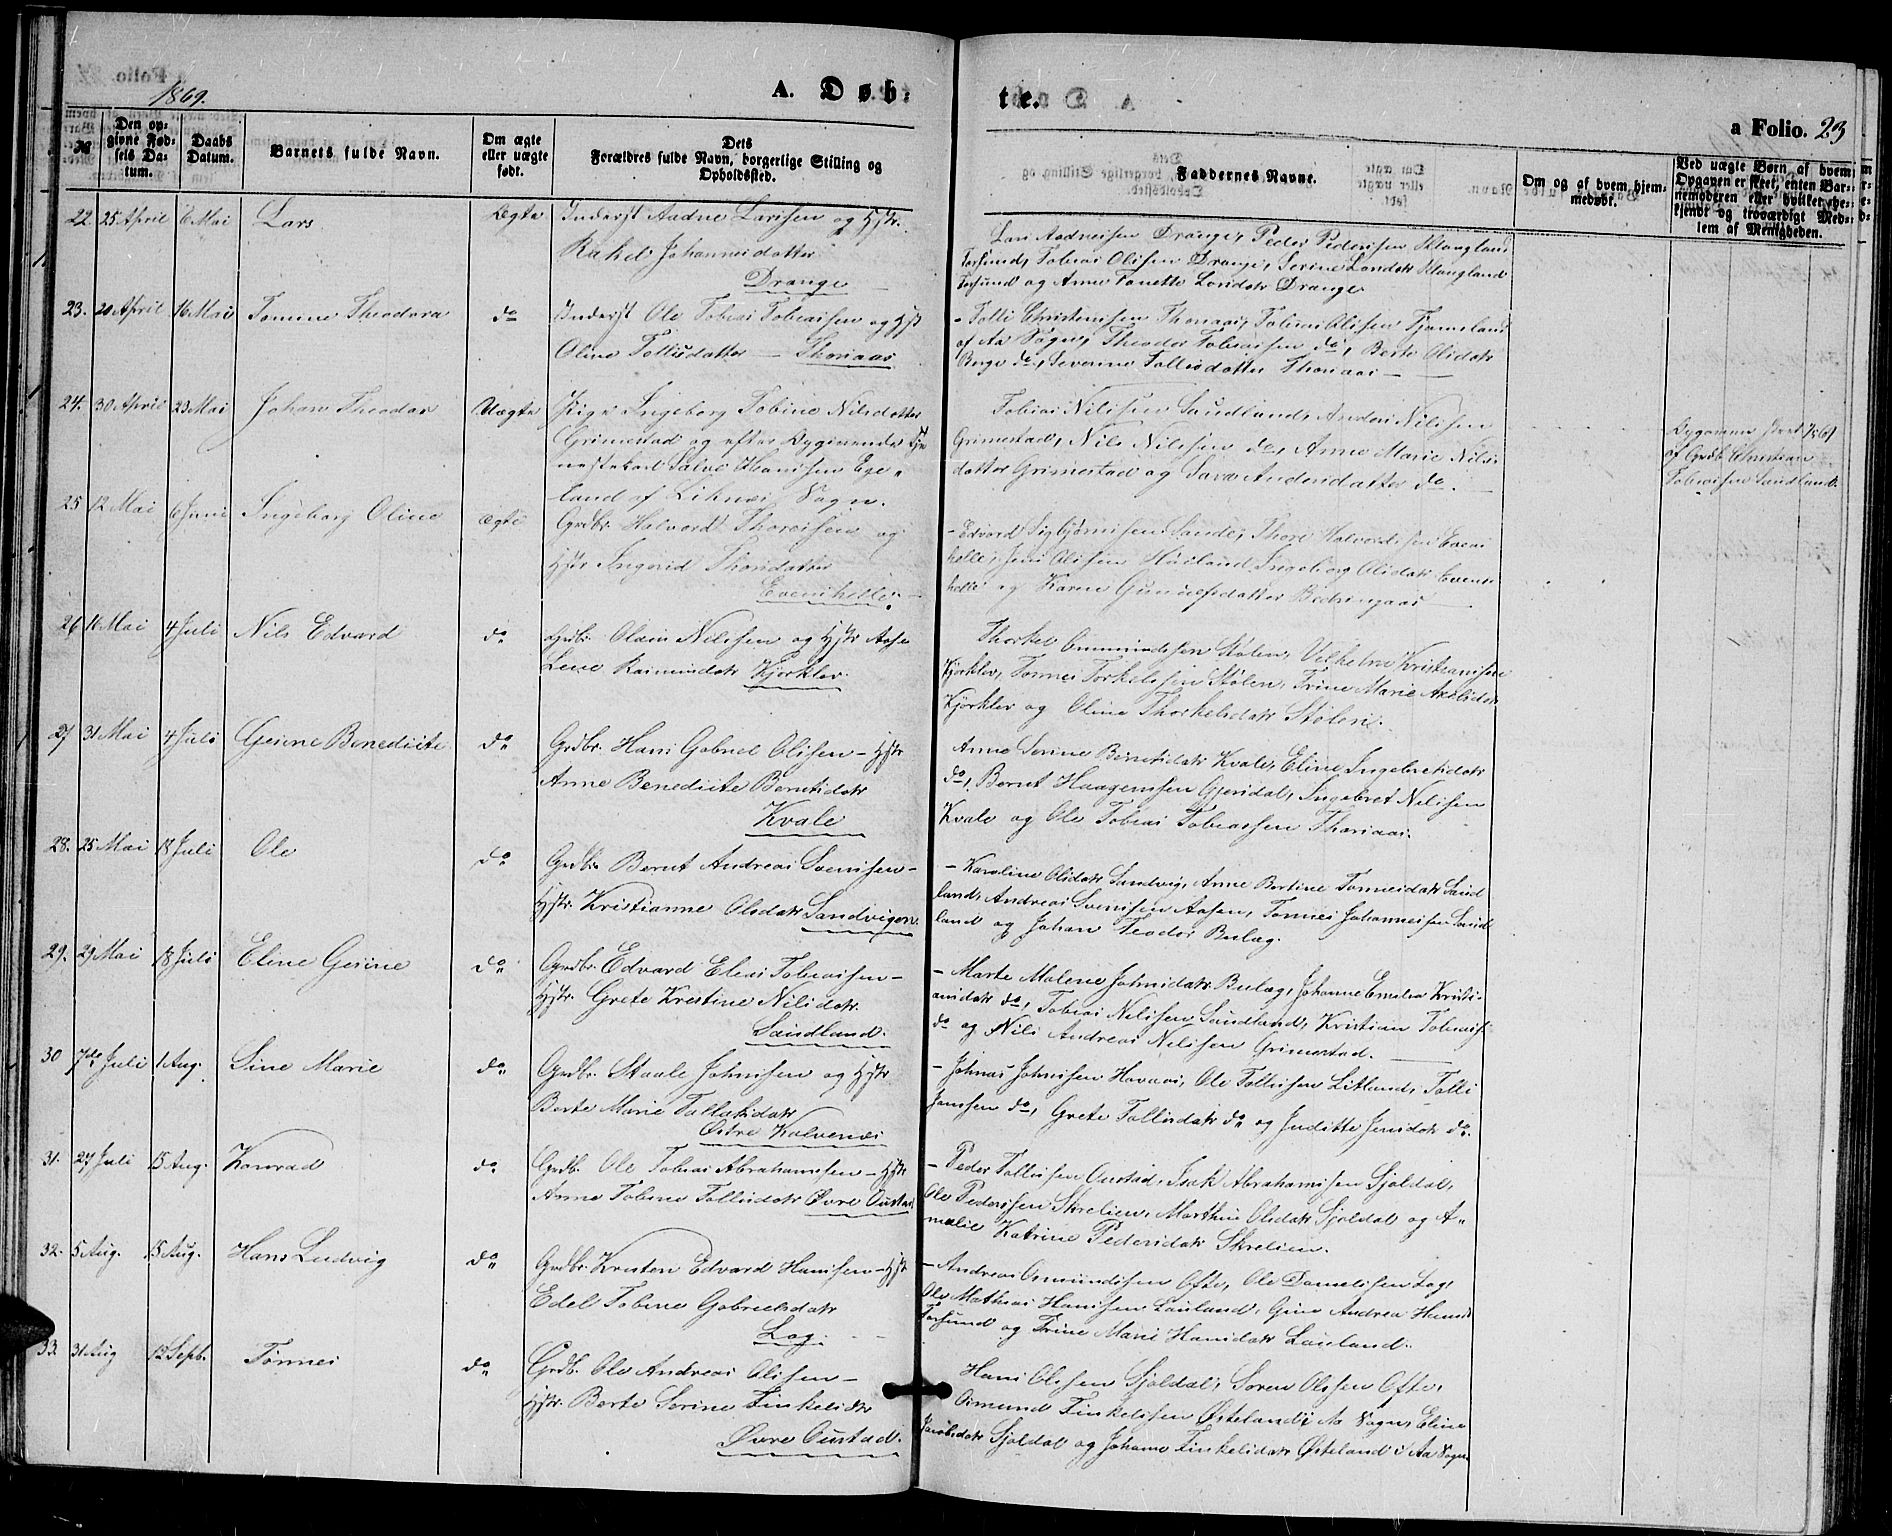 1869.
A. Døb-
te.
a Folio. 23
№
Den op-
givne Fød-
sels Da-
tum.
Daabs
Datum.
Barnets fulde Navn.
Om ægte
eller uægte
født.
Dets
Forældres fulde Navn, borgerlige Stilling og
Opholdssted.
Faddernes Navne.
Om og af hvem hjem-
medøbt.
Ved uægte Børn, af hvem
Opgaven er skeet, enten Bar-
nemoderen eller hvilket be-
kjendt og troværdigt Med-
lem af Menigheden.
22. 25 April 6 Mai Lars Ægte Inderst Aadne Larssen og Hstr.
Rakel Johannesdatter
Drange
Lars Aadnessen Drange, Peder Pederssen Klungland
Farsund, Tobias Olssen Drange, Serine Larsdatr Klungland
Farsund og Anne Tonette Larsdatr Drange
23. 20 April 16 Mai Tomine Theodora do Inderst Ole Tobias Tobiassen og Hst
Oline Tollisdatter — Thoriaas
- Tolli Christenssen Thoriaas, Tobias Olssen Tjomsland
af Aa Sogn, Theodor Tobiassen do, Berte Olsdatr
Berge do, Severine Tollisdatter Thoriaas —
24. 30 April 23 Mai Johan Theodor Uægte Pige Ingeborg Tobine Nilsdatter
Grimestad og efter Opgivende Tje
nestekarl Salve Hanssen Ege-
land af Liknes Sogn.
Tobias Nilssen Saudland, Anders Nilssen
Grimestad, Nils Nilssen do, Anne Marie Nils-
datter Grimestad og Sara Andersdatter do.
Opgaven skeet 7/5 69
af Grdb. Christian
Tobiassen Saudland.
25 12 Mai 6 Juni Ingeborg Oline Ægte Grdbr. Halvord Thoressen og
Hstr Ingerid Thorsdatter
Evenshelle.
- Edvord Sigbjørnssen Sande, Thore Halvordssen Evens
helle, Jens Olssen Hauland, Ingeborg Olsdatr Evens
helle og Karen Gunnufsdatter Bedringaas
26 16 Mai 4 Juli Nils Edvard do Grdbr. Olaus Nilssen og Hstr Aase
Lene Rasmusdatr Kjørklev.
Thorkel Ommundssen Stølen, Vilhelm Kristianssen
Kjørklev, Tønnes Torkelssen Stølen, Trine Marie Axelsdatr
Kjørklev og Oline Thorkelsdatr Stølen.
27 31 Mai 4 Juli Gesine Benedicte do Grdbr. Hans Gabriel Olssen - Hstr
Anne Benedicte Berntsdatr
Kvale
Anne Serine Berntsdatr Kvale, Eline Ingebretsdatr
do, Bernt Haagenssen Gjersdal, Ingebret Nilssen
Kvale og Ole Tobias Tobiassen Thoriaas.
28. 25 Mai 18 Juli Ole do Grdbr Bernt Andreas Svenssen -
Hstr. Kristianne Olsdatr Sandvigen
- Karoline Olsdatr Sandvig, Anne Bertine Tønnesdatr Saud
land, Andreas Svenssen Aasen, Tønnes Johannessen Saud
land og Johan Teodor Bulæg.
29. 29 Mai 18 Juli Eline Gesine do Grdbr. Edvard Elias Tobiassen -
Hstr. Grete Kristine Nilsdatr.
Saudland.
- Marte Malene Johnsdatr Bulæg, Johanne Emelie Kristi-
ansdatr do, Tobias Nilssen Saudland, Kristian Tobiass.
do og Nils Andreas Nilssen Grimestad.
30 7de Juli 1 Aug. Sine Marie do Grdbr. Staale Johnssen og Hstr
Berte Marie Tollaksdatr
Østre Kalvenes
- Johnas Johnssen Havaas, Ole Tollissen Litland, Tolli
Janssen do, Grete Tollisdatr do og Juditte Jensdatr do.
31. 27 Juli 15 Aug. Konrad do Grdb. Ole Tobias Abrahamssen - Hstr
Anne Tobine Tollisdatr Øvre Oustad
- Peder Tollissen Oustad, Isak Abrahamssen Sjøldal,
Ole Pederssen Skrelien, Marthine Olsdatr Sjøldal og A-
malie Katrine Pedersdatr Skrelien.
32. 5 Aug. 15 Aug. Hans Ludvig do Grdbr. Kristen Edvard Hanssen - Hstr
Edel Tobine Gabrielsdatr
Log.
- Andreas Osmundssen Ofte, Ole Danielssen Log,
Ole Mathias Hanssen Lauland, Gine Andrea Hansd
Farsund og Trine Marie Hansdatr Lauland.
33. 31 Aug 12 Septb. Tønnes do Grdb. Ole Andreas Olssen -
Hstr. Berte Serine Tinkelsdtr
Øvre Oustad.
Hans Olssen Sjøldal, Søren Olssen Ofte,
Osmund Tinkelssen Østeland i Aa Sogn, Eline
Jacobsdatr Sjøldal og Johanne Tinkelsdatr Østeland i Aa Sogn